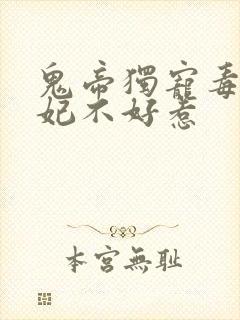 鬼帝獨寵毒
妃不好惹
本宮無耻